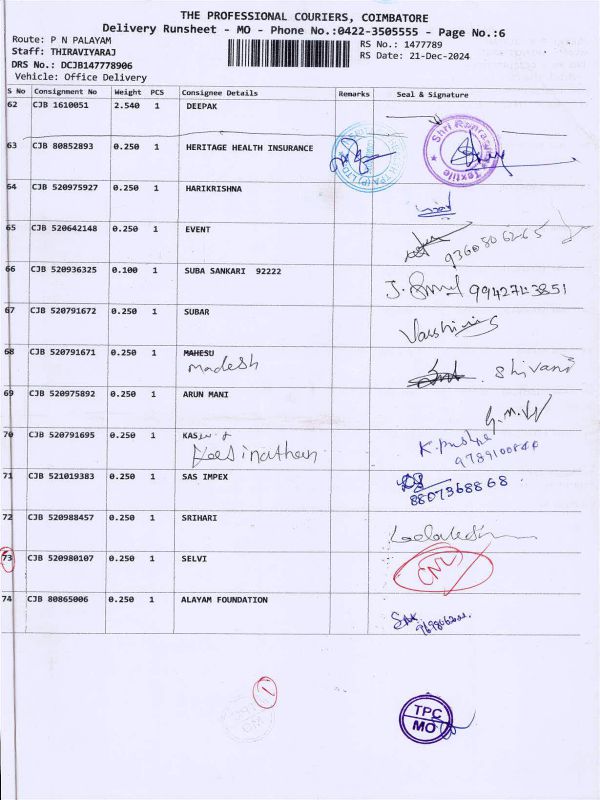 THE PROFESSIONAL COURIERS, COIMBATORE
Delivery Runsheet - MO - Phone No.:0422-3505555 - Page No.:6
Route: P N PALAYAM
Staff: THIRAVIYARAJ
DRS No.: DCJB147778906
Vehicle: Office Delivery
RS No.: 1477789
RS Date: 21-Dec-2024
S No Consignment No Weight PCS Consignee Details Remarks Seal & Signature
62 CJB 1610051 2.540 1 DEEPAK
63 CJB 80852893 0.250 1 HERITAGE HEALTH INSURANCE
Textile
64 CJB 520975927 0.250 1 HARIKRISHNA
65 CJB 520642148 0.250 1 EVENT
9360806265
66 CJB 520936325 0.100 1 SUBA SANKARI 92222
9942743851
67 CJB 520791672 0.250 1 SUBAR
68 CJB 520791671 0.250 1 MAHESU
madesh
Shivani
69 CJB 520975892 0.250 1 ARUN MANI
70 CJB 520791695 0.250 1 KAS
Kasinathan
K. Pushpa
71 CJB 521019383 0.250 1 SAS IMPEX
8807368868
72 CJB 520988457 0.250 1 SRIHARI
73 CJB 520980107 0.250 1 SELVI
74 CJB 80865006 0.250 1 ALAYAM FOUNDATION
1
TPC
MO